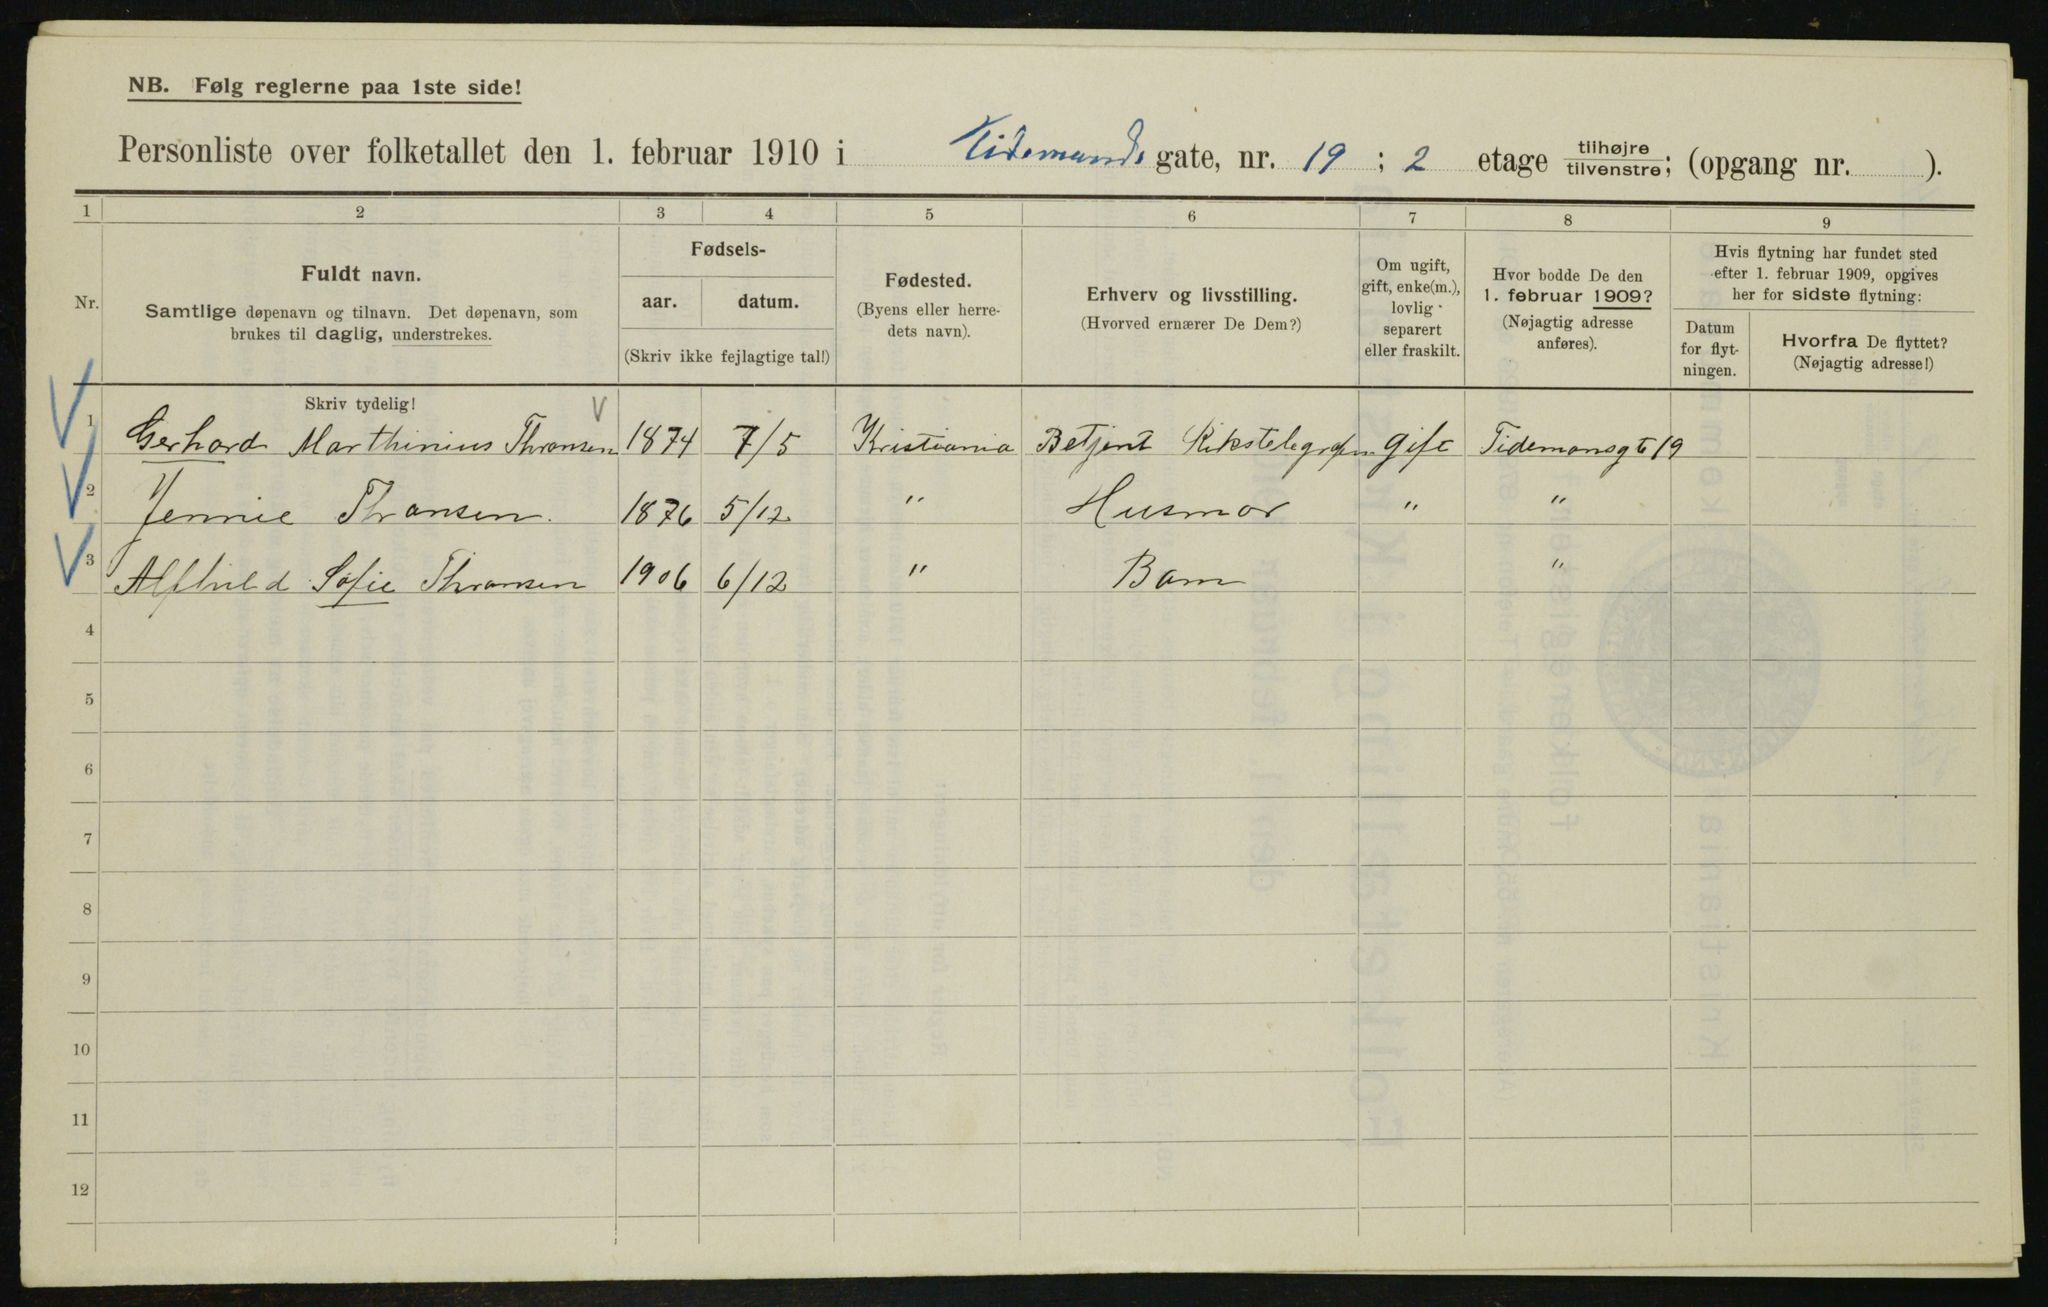 NB. Følg reglerne paa 1ste side!
Personliste over folketallet den 1. februar 1910 i Tidemands gate, nr. 19 ; 2 etage tilhøjre/tilvenstre; (opgang nr. ).
1 2 3 4 5 6 7 8 9
Nr.
Fuldt navn.
Samtlige døpenavn og tilnavn. Det døpenavn, som
brukes til daglig, understrekes.
Fødsels-
aar. datum.
(Skriv ikke fejlagtige tal!)
Fødested.
(Byens eller herre-
dets navn).
Erhverv og livsstilling.
(Hvorved ernærer De Dem?)
Om ugift,
gift, enke(m.),
lovlig
separert
eller fraskilt.
Hvor bodde De den
1. februar 1909?
(Nøjagtig adresse
anføres).
Hvis flytning har fundet sted
efter 1. februar 1909, opgives
her for sidste flytning:
Datum
for flyt-
ningen.
Hvorfra De flyttet?
(Nøjagtig adresse!)
Skriv tydelig!
1 Gerhard Marthinius Thransen 1874 7/5 Kristiania Betjent Rikstelegrafen gift Tidemansgt 19
2 Jennie Thransen. 1876 5/12 " Husmor " "
3 Alfhild Sofie Thransen 1906 6/12 " Barn "
4
5
6
7
8
9
10
11
12